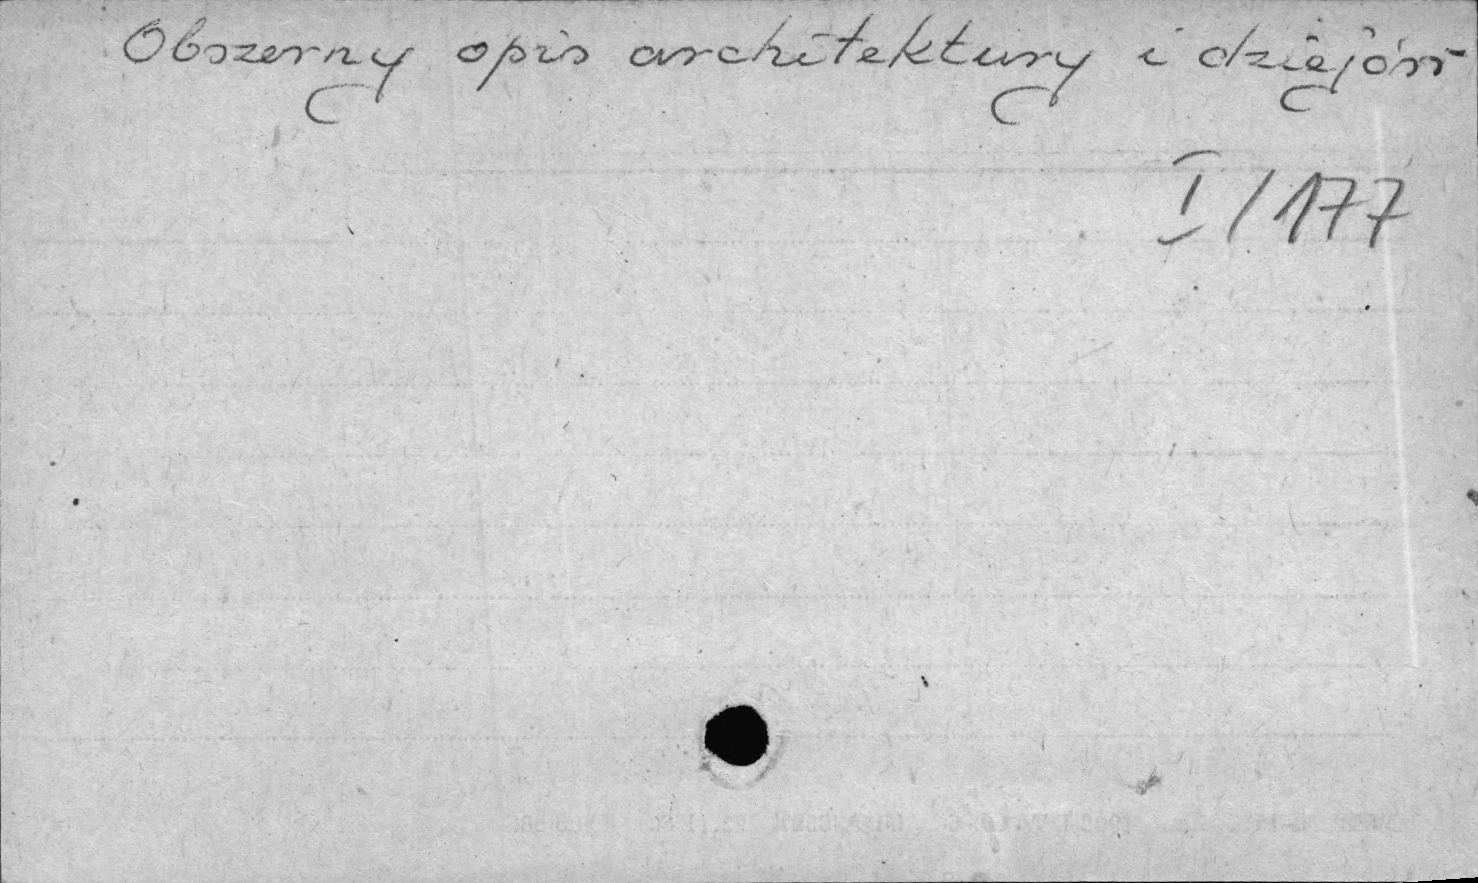 Obszerny opis architektury i dziejów
I/177